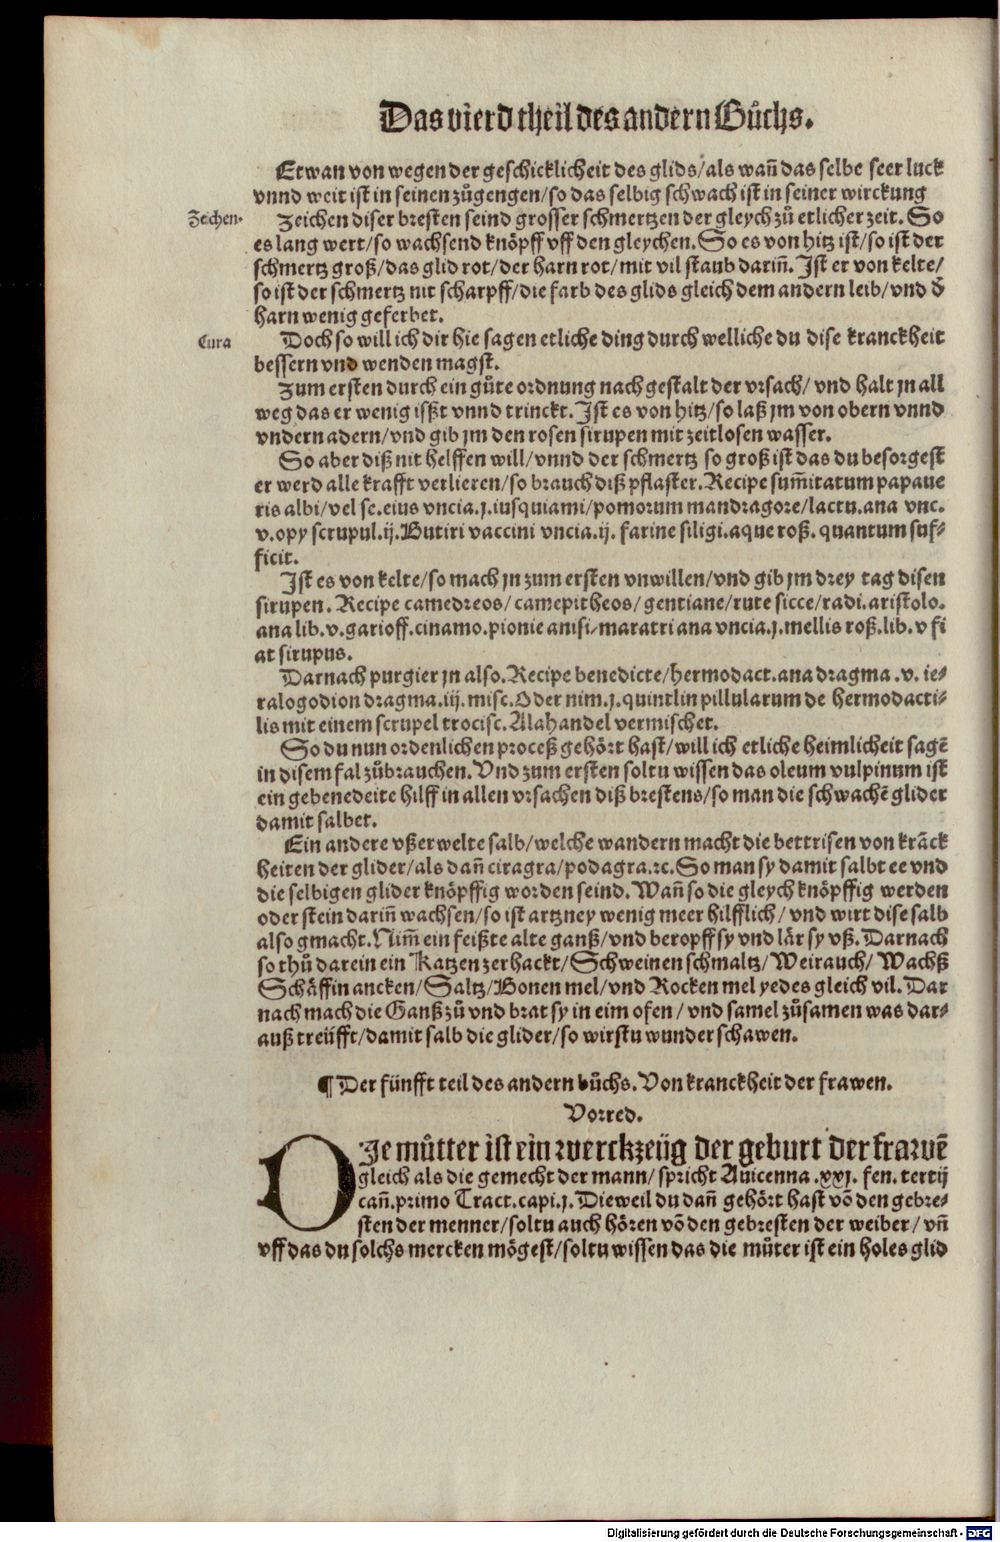 Das vierd theil des andern Bůchs.
Etwan von wegen der geschicklicheit des glids/als wañ das selbe seer luck
vnnd weit ist in seinen zůgengen/so das selbig schwach ist in seiner wirckung
Zeichen.
Zeichen diser bresten seind grosser schmertzen der gleych zů etlicher zeit. So
es lang wert/so wachsend knöpff vff den gleychen. So es von hitz ist/so ist der
schmertz groß/das glid rot/der harn rot/mit vil staub dariñ. Ist er von kelte/
so ist der schmertz nit scharpff/die farb des glids gleich dem andern leib/vnd d̄
harn wenig geferbet.
Cura
Doch so will ich dir hie sagen etliche ding durch welliche du dise kranckheit
bessern vnd wenden magst.
Zum ersten durch ein gůte ordnung nach gestalt der vrsach/vnd halt jn all
weg das er wenig isßt vnnd trinckt. Ist es von hitz/so laß jm von obern vnnd
vndern adern/vnd gib jm den rosen sirupen mit zeitlosen wasser.
So aber diß nit helffen will/vnnd der schmertz so groß ist das du besorgest
er werd alle krafft verlieren/so brauch diß pflaster. Recipe sum̄itatum papaue
ris albi/vel se. eius vncia.j. iusquiami/pomorum mandragore/lactu.ana vnc.
v. opy scrupul.ij. Butiri vaccini vncia.ij. farine siligi. aque roß. quantum suf-
ficit.
Ist es von kelte/so mach jn zum ersten vnwillen/vnd gib jm drey tag disen
sirupen. Recipe camedreos/camepitheos/gentiane/rute sicce/radi. aristolo.
ana lib.v. garioff. cinamo. pionie anisi/maratri ana vncia.j. mellis roß. lib.v fi
at sirupus.
Darnach purgier jn also. Recipe benedicte/hermodact. ana dragma.v. ie-
ralogodion dragma.iij. misc. Oder nim.j. quintlin pillularum de hermodacti-
lis mit einem scrupel trocisc. Alahandel vermischet.
So du nun ordenlichen proceß gehört hast/will ich etliche heimlicheit sagē
in disem fal zůbrauchen. Vnd zum ersten soltu wissen das oleum vulpinum ist
ein gebenedeite hilff in allen vrsachen diß brestens/so man die schwachē glider
damit salbet.
Ein andere vßerwelte salb/welche wandern macht die bettrisen von krāck
heiten der glider/als dañ ciragra/podagra.ꝛc. So man sy damit salbt ee vnd
die selbigen glider knöpffig worden seind. Wañ so die gleych knöpffig werden
oder stein dariñ wachsen/so ist artzney wenig meer hilfflich/vnd wirt dise salb
also gmacht. Nim̄ ein feißte alte ganß/vnd beropff sy vnd lär sy vß. Darnach
so thů darein ein Katzen zerhackt/Schweinen schmaltz/Weirauch/Wachß
Schäffin ancken/Saltz/Bonen mel/vnd Rocken mel yedes gleich vil. Dar
nach mach die Ganß zů vnd brat sy in eim ofen/vnd samel zůsamen was dar-
auß treüfft/damit salb die glider/so wirstu wunder schawen.
¶ Der fünfft teil des andern bůchs. Von kranckheit der frawen.
Vorred.
DJe můtter ist ein werckzeüg der geburt der frawē
gleich als die gemecht der mann/spricht Auicenna .xxj. fen. tertij
cañ. primo Tract. capi.j. Dieweil du dañ gehört hast vō den gebre-
sten der menner/soltu auch hören vō den gebresten der weiber/vñ
vff das du solchs mercken mögest/soltu wissen das die můter ist ein holes glid
Digitalisierung gefördert durch die Deutsche Forschungsgemeinschaft - DFG